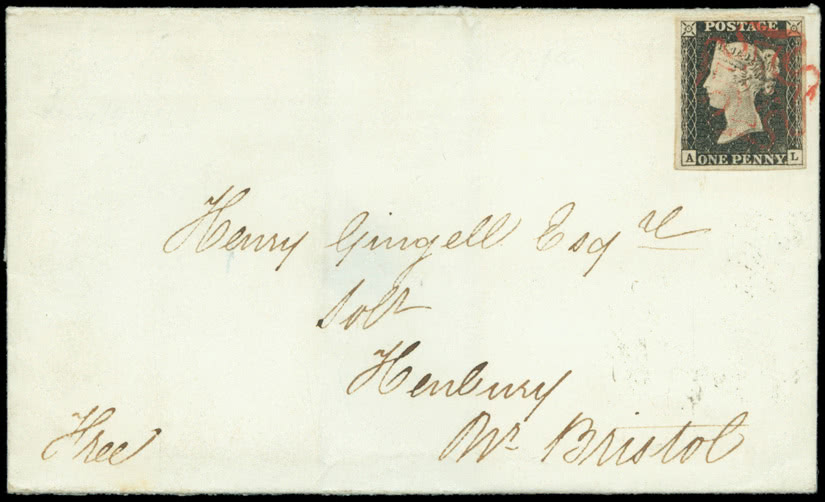 POSTAGE
A ONE PENNY L
Henry Gingell Esqre
Solr
Henbury
Nr Bristol
Free